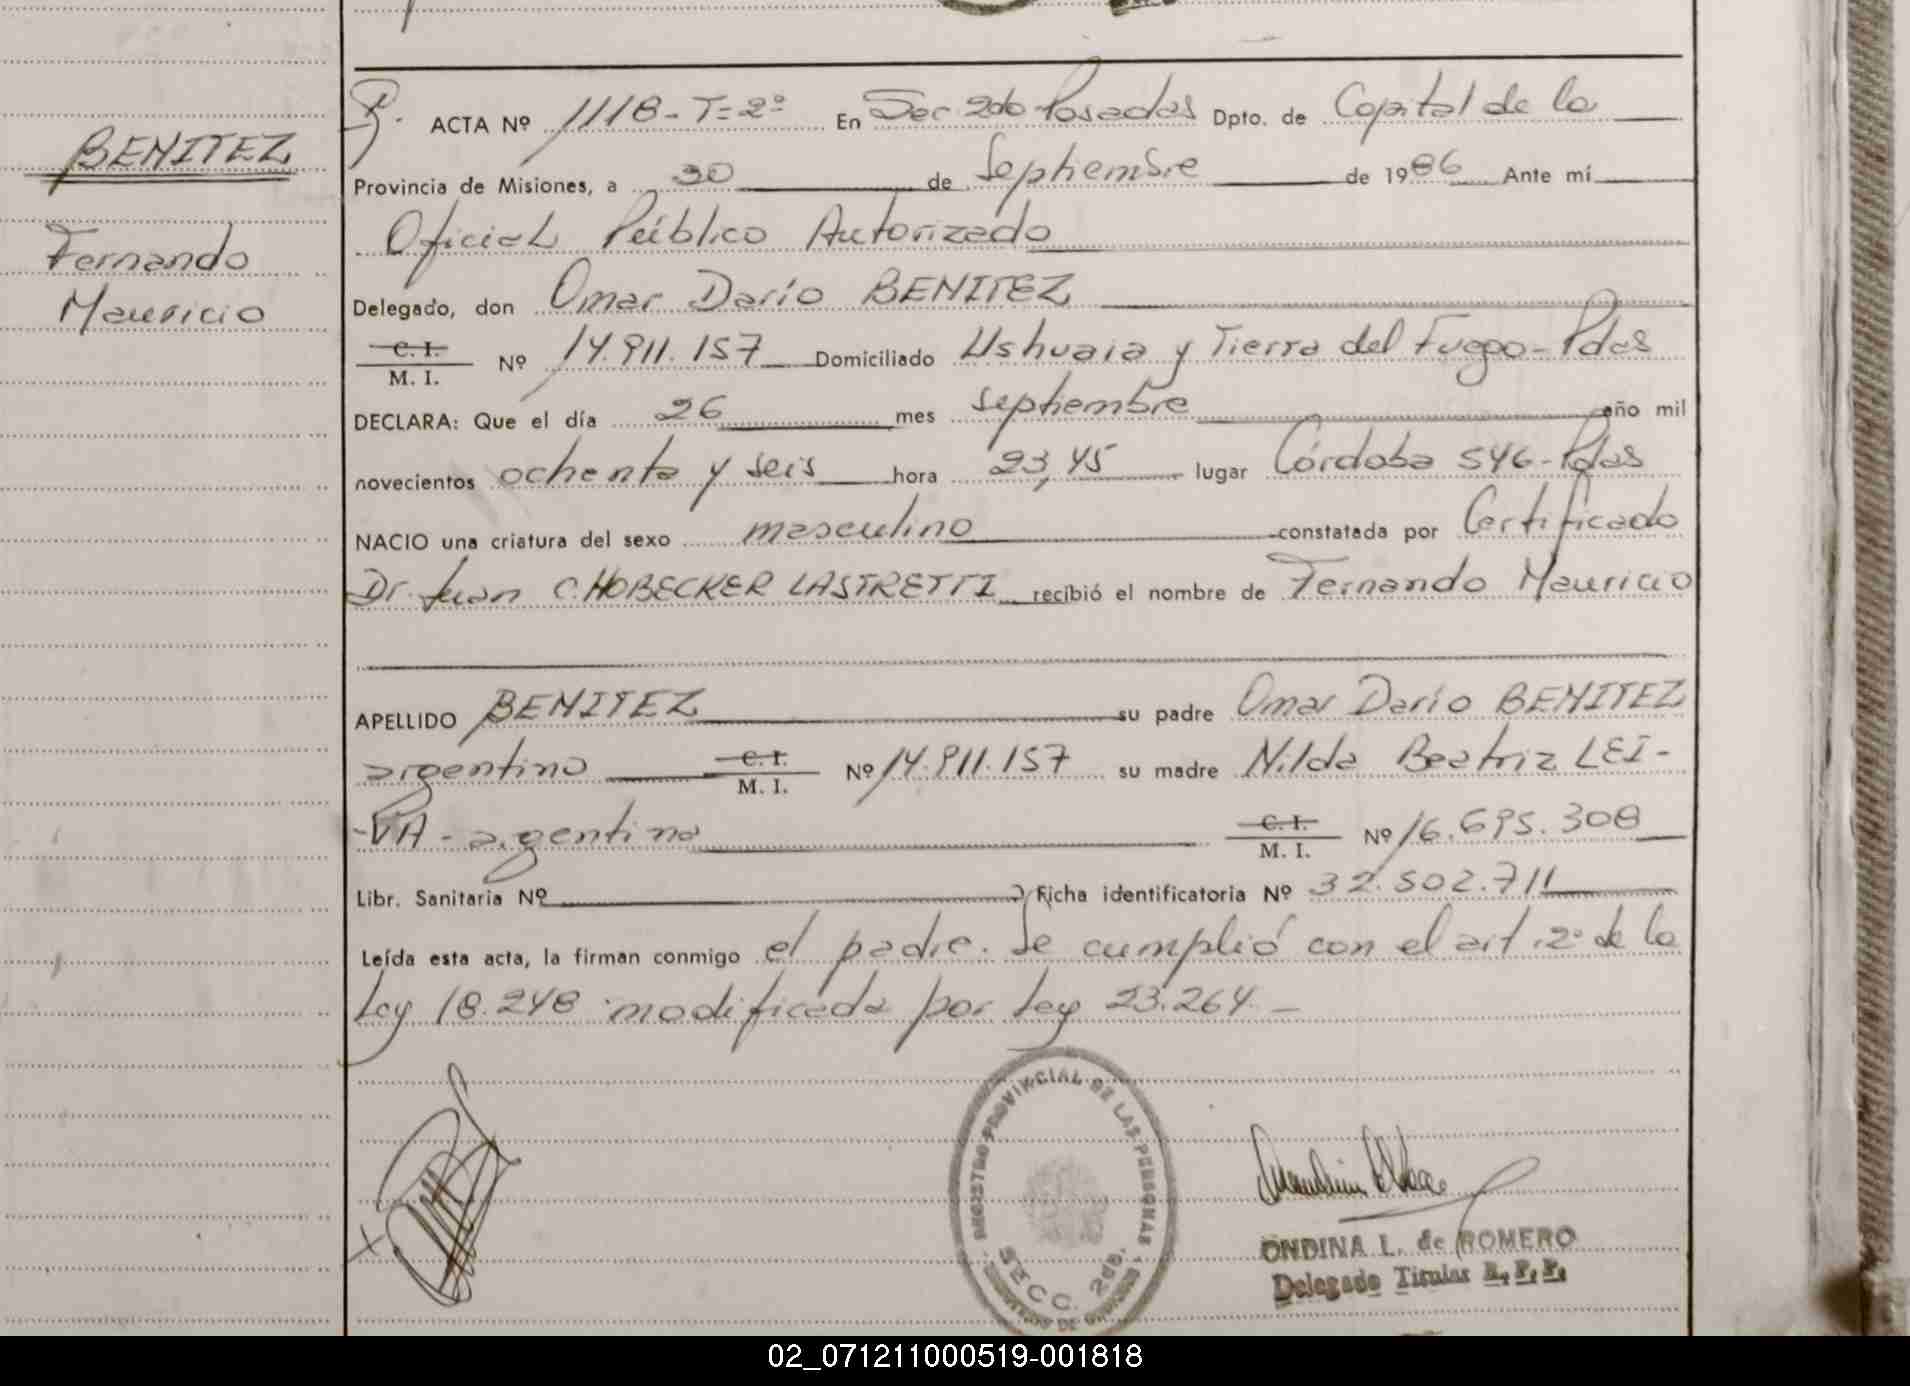 BENITEZ
Fernando
Mauricio
ACTA Nº 1118-T=2º En Sec 2do Posadas Dpto. de Capital de la
Provincia de Misiones, a 30 de Septiembre de 1986 Ante mí
Oficial Público Autorizado
Delegado, don Omar Darío BENITEZ
C. I.
M. I. Nº 14.911.157 Domiciliado Ushuaia y Tierra del Fuego-Pdas
DECLARA: Que el día 26 mes septiembre año mil
novecientos ochenta y seis hora 23,45 lugar Córdoba 546-Pdas
NACIO una criatura del sexo masculino constatada por Certificado
Dr. Juan C. HOBECKER LASTRETTI recibió el nombre de Fernando Mauricio
APELLIDO BENITEZ su padre Omar Darío BENITEZ
argentino C. I. M. I. Nº 14.911.157 su madre Nilda Beatriz LEI-
-VA-argentina C. I. M. I. Nº 16.695.308
Libr. Sanitaria Nº Ficha identificatoria Nº 32.502.711
Leída esta acta, la firman conmigo el padre. Se cumplió con el art. 2º de la
Ley 18.248 modificada por Ley 23.264.-
REGISTRO PROVINCIAL DE LAS PERSONAS
SECC. 2da.
ONDINA L. de ROMERO
Delegado Titular R. P. P.
02_071211000519-001818